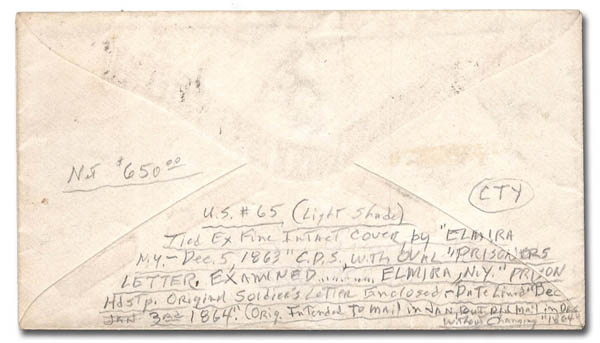 Net $650.00
CTY
U.S. # 65 (Light Shade)
Tied Ex Fine Intact Cover by "ELMIRA
N.Y. - Dec. 5 1863" C.D.S., with OVAL "PRISONERS
LETTER, EXAMINED............, ELMIRA, N.Y." PRISON
Hdstp. Original Soldier's Letter Enclosed - DateLined "Dec
Jan 3rd 1864". (Orig. Intended to Mail in JAN, But Did Mail in Dec
Without Changing "1864"